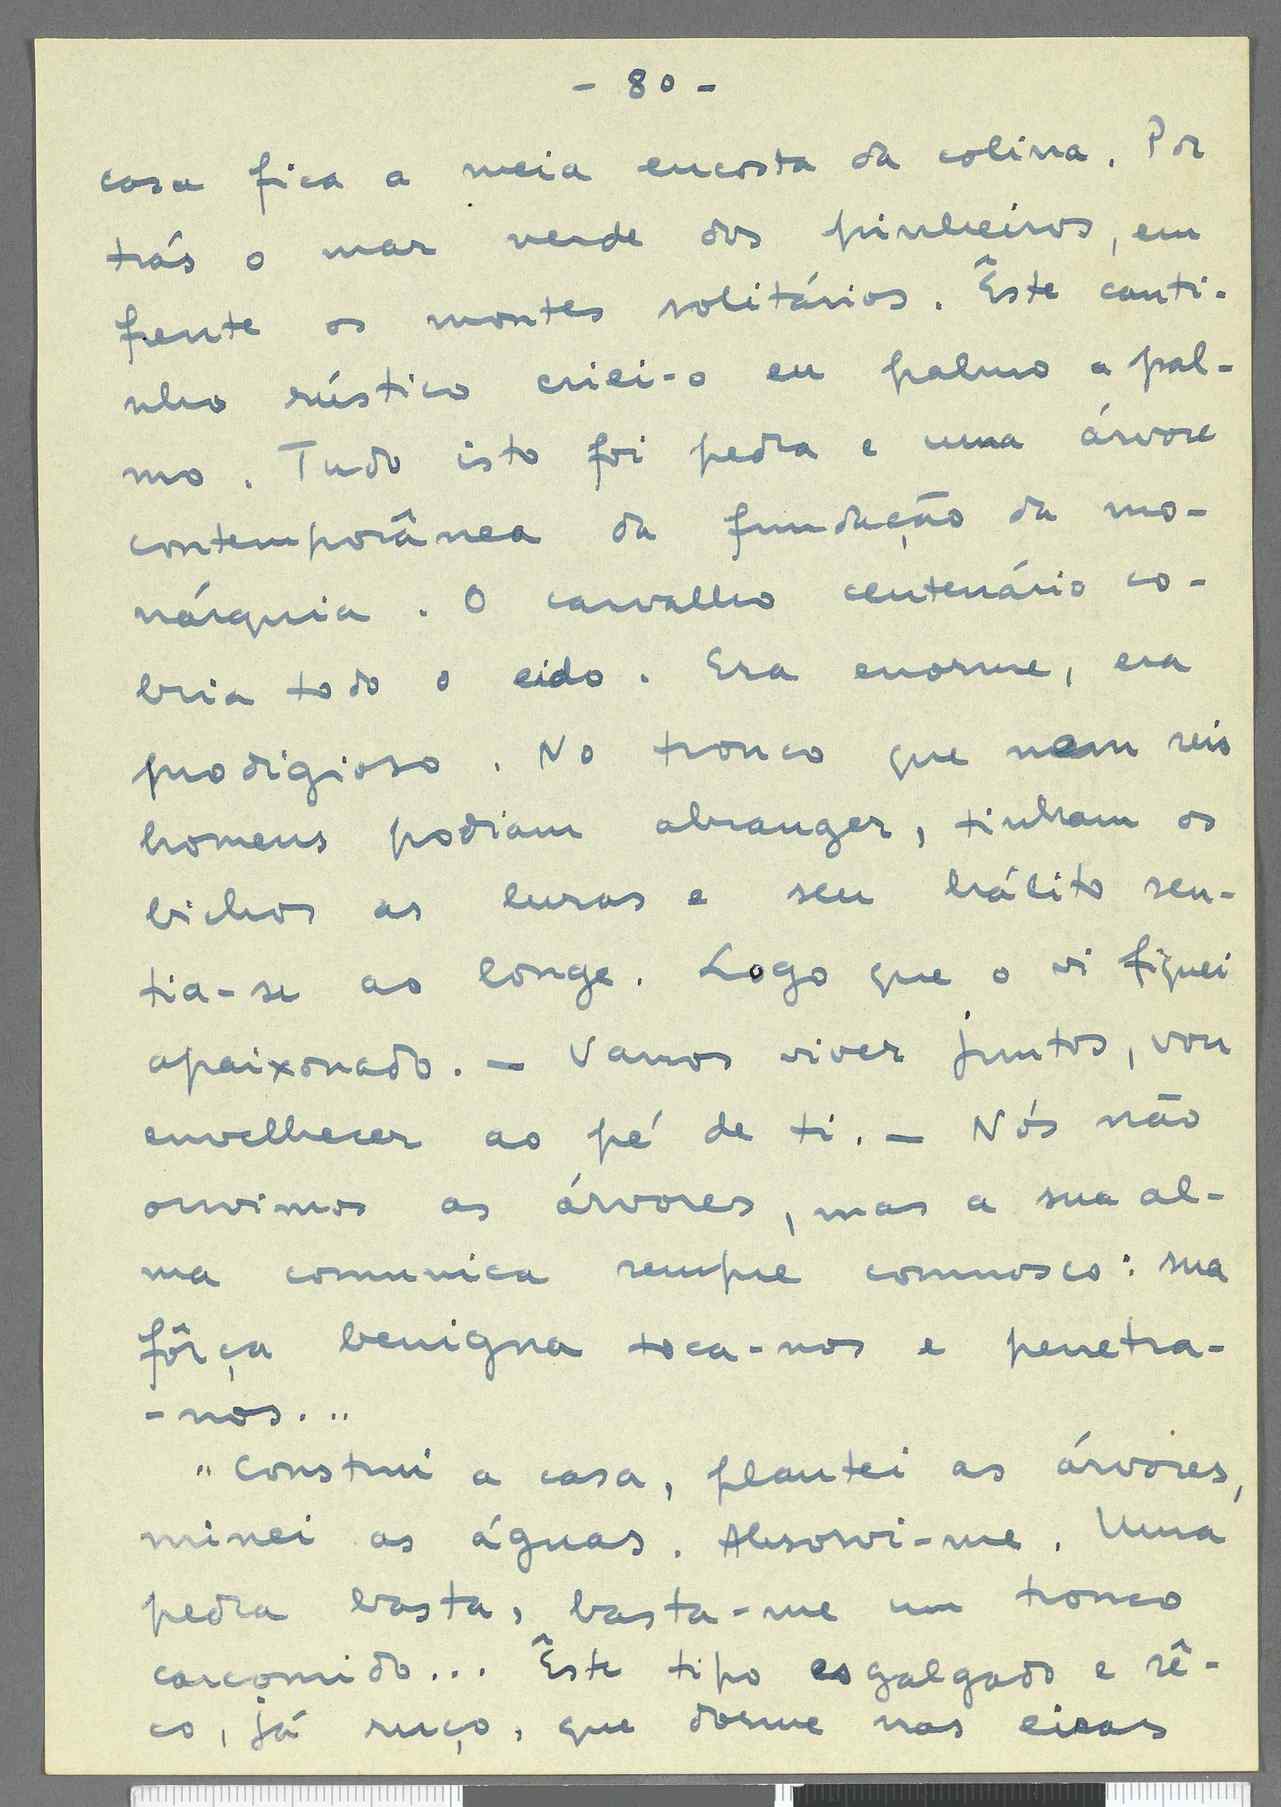 - 80 -
casa fica a meia encosta da colina. Por
trás o mar verde dos pinheiros, em
frente os montes solitários. Êste canti-
nho rústico criei-o eu palmo a pal-
mo. Tudo isto foi pedra e uma árvore
contemporânea da fundação da mo-
nárquia. O carvalho centenário co-
bria todo o eido. Era enorme, era
prodigioso. No tronco que nem seis
homens podiam abranger, tinham os
bichos as luras e seu hálito sen-
tia-se ao longe. Logo que o vi fiquei
apaixonado. — Vamos viver juntos, vou
envelhecer ao pé de ti. — Nós não
ouvimos as árvores, mas a sua al-
ma comunica sempre connosco: sua
fôrça benigna toca-nos e penetra-
-nos..."
"Construi a casa, plantei as árvores,
minei as águas. Absorvi-me. Uma
pedra basta, basta-me um tronco
carcomido... Êste tipo esgalgado e sê-
co, já ruço, que dorme nas eiras